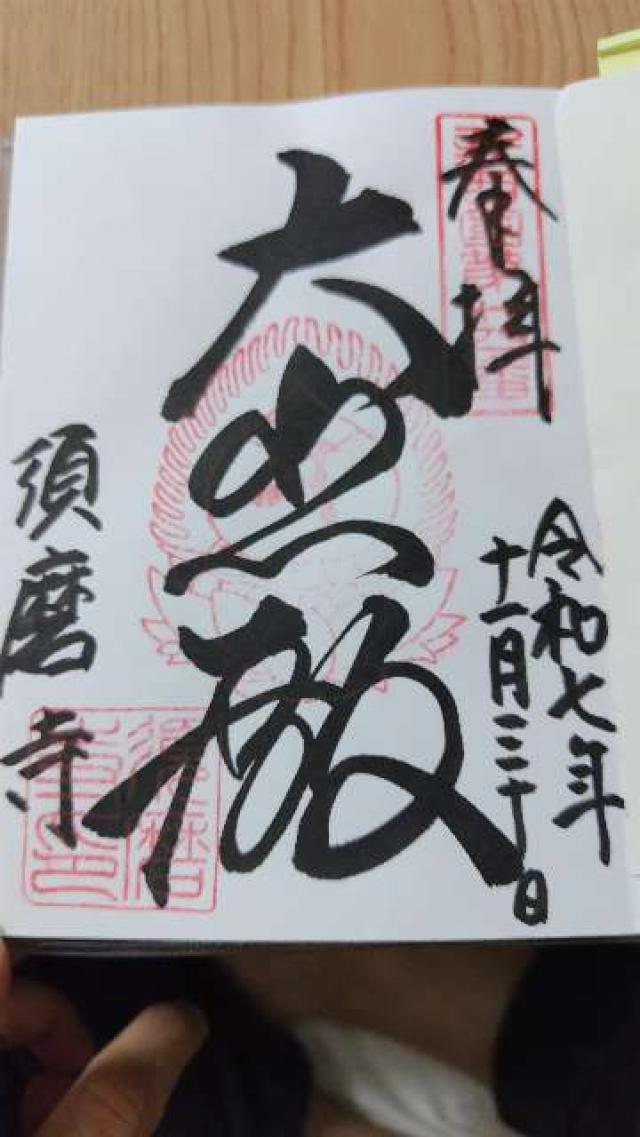 奉拝
令和七年
十一月三十日
大悲殿
須磨寺